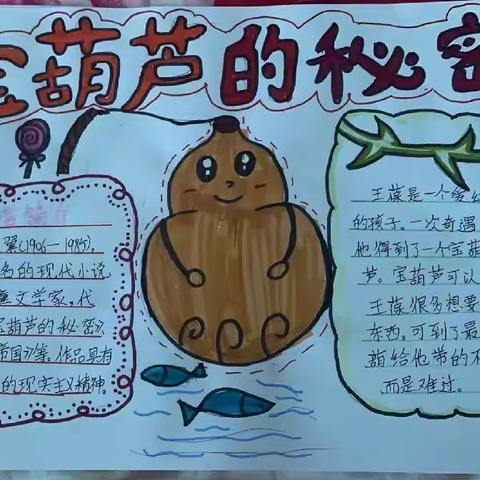 宝葫芦的秘密
翼(1906—1985),
名的现代小说
童文学家。代
宝葫芦的秘密》
帝国》等,作品具有
的现实主义精神。
王葆是一个爱幻
的孩子。一次奇遇
他得到了一个宝葫
芦。宝葫芦可以
王葆很多想要
东西,可到了最
葫给他带的不
而是难过。